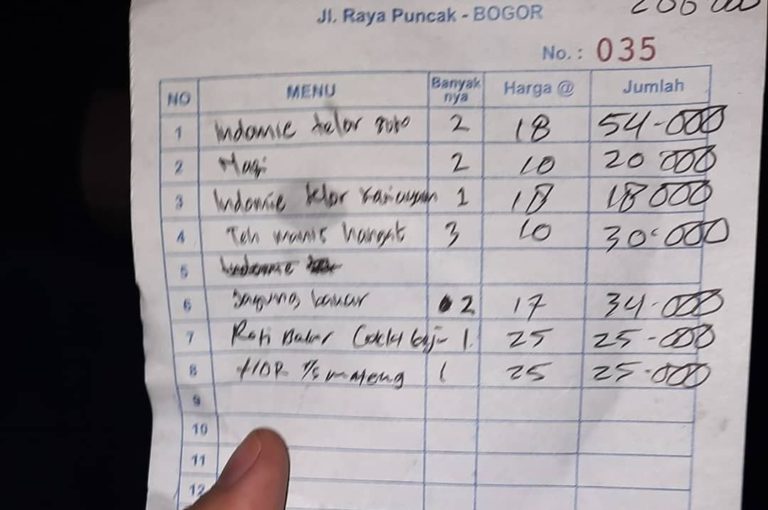 Jl. Raya Puncak - BOGOR
No.: 035
NO MENU Banyak nya Harga @ Jumlah
1 Indomie telor soto 2 18 54.000
2 Nasi 2 10 20 000
3 Indomie telor 1 18 18 000
4 Teh manis hangat 3 10 30.000
5 Indomie
6 Jagung bakar 2 17 34.000
7 Roti Bakar 1 25 25-000
8 1 25 25-000
9
10
11
12